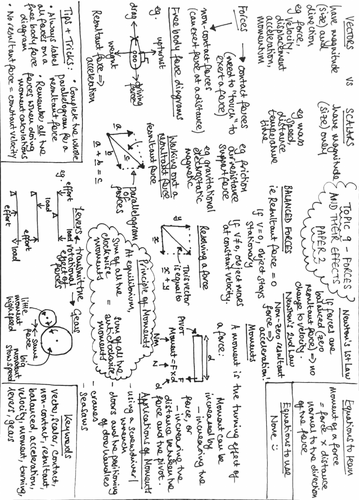 VECTORS VS SCALARS
have magnitude
(size) and
direction
eg force,
velocity,
displacement
acceleration,
momentum
have magnitude
(size) only
eg mass
speed,
distance
temperature
time
TOPIC 9 - FORCES
AND THEIR EFFECTS
PAPER 2
NEWTON'S 1ST LAW
If forces are
balanced (zero
resultant force) => no
change to velocity.
NEWTON'S 2ND LAW
Non-zero resultant
force =>
acceleration
Equations to learn
Moment of a force
= force x distance
normal to the direction
of the force
Equations to use
None
Forces
contact forces
(need to "touch" to
exert a force)
eg friction
air resistance
support force
non-contact forces
(can exert force at a distance)
eg gravitational
magnetic
electrostatic
BALANCED FORCES
ie Resultant force = 0
If v=0, object stays
stationary
If v≠0, object moves
at constant velocity
A moment is the turning effect of
a force:
PIVOT
d
F
Moment = F x d
Nm N m
Moment can be
increased by
- increasing the
force, or
- increasing the
distance between the
force and the pivot.
Free body force diagrams
eg.
upthrust
drag
driving
force
weight
Resultant force =>
acceleration
Working out a
resultant force
parallelogram
of
forces
resultant force
Resolving a force
This vector
is equal to
x + y
Principle of Moments
At equilibrium,
sum of all the
clockwise
moments
=
sum of all the
anticlockwise
moments
Applications of Moments
using a screwdriver/
wrench
doors and the positioning
of door handles
cranes
seesaws
Tips + Tricks
• Complete the whole
parallelogram for a
resultant force
• Always label
all forces on a
free body force
diagram
• Remember all the
forces when doing
moment calculations
• No resultant force = constant velocity
Levers
transmit the
rotational
effect of
forces
Gears
eg.
effort
load
effort
load
effort
load
same
force
little
moment
high speed
big
moment
slow speed
Keywords
vector, scalar, contact,
non-contact, resultant,
balanced, acceleration,
velocity, moment, turning,
levers, gears